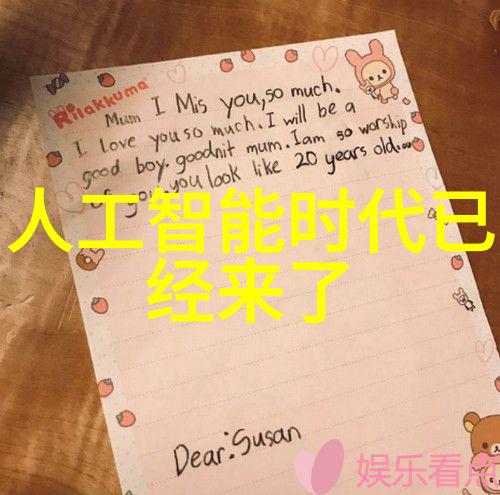 Rilakkuma
Mum I Mis you, so much.
I love you so much. I will be a
good boy. goodnit mum. I am so worship
of you you look like 20 years old...
人工智能时代已
经来了
Dear: Susan
娱乐看点